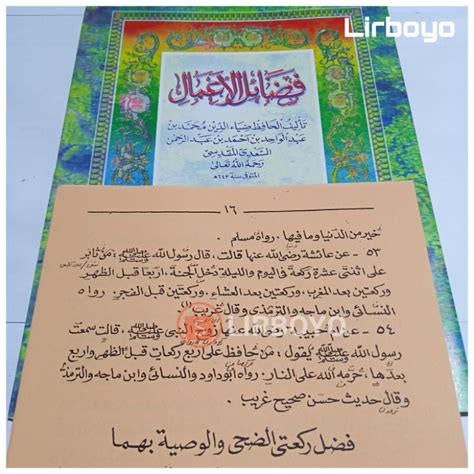 Lirboyo
فضائل الأعمال
تأليف الحافظ ضياء الدين محمد بن
عبد الواحد بن أحمد بن عبد الرحمن
السعدي المقدسي
رحمه الله تعالى
المتوفى سنة ٦٤٣هـ
١٦
خير من الدنيا وما فيها. رواه مسلم
٥٣ - عن عائشة رضي الله عنها قالت، قال رسول الله ﷺ: من ثابر
على اثنتي عشرة ركعة في اليوم والليلة دخل الجنة، اربعا قبل الظهر
وركعتين بعد المغرب، وركعتين بعد العشاء، وركعتين قبل الفجر. رواه
النسائي وابن ماجه والترمذي وقال غريب (١)
٥٤ - عن زوج النبي ﷺ، قالت سمعت
LIRBOYO
رسول الله ﷺ يقول، من حافظ على اربع ركعات قبل الظهر واربع
بعدها، حرمه الله على النار. رواه ابو داود والنسائي وابن ماجه والترمذ
وقال حديث حسن صحيح غريب.
فضل ركعتي الضحى والوصية بهما